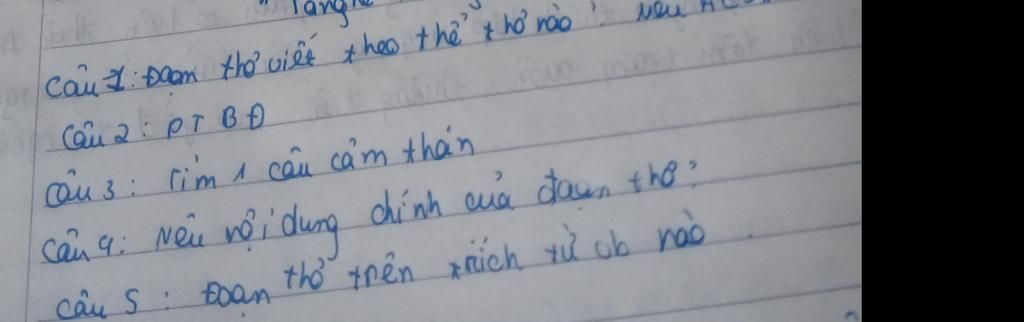 Câu 1: Đoạn thơ viết theo thể thơ nào? Nêu
Câu 2: PTBĐ
Câu 3: Tìm 1 câu cảm thán
Câu 4: Nêu nội dung chính của đoạn thơ?
Câu 5: Đoạn thơ trên trích từ vb nào